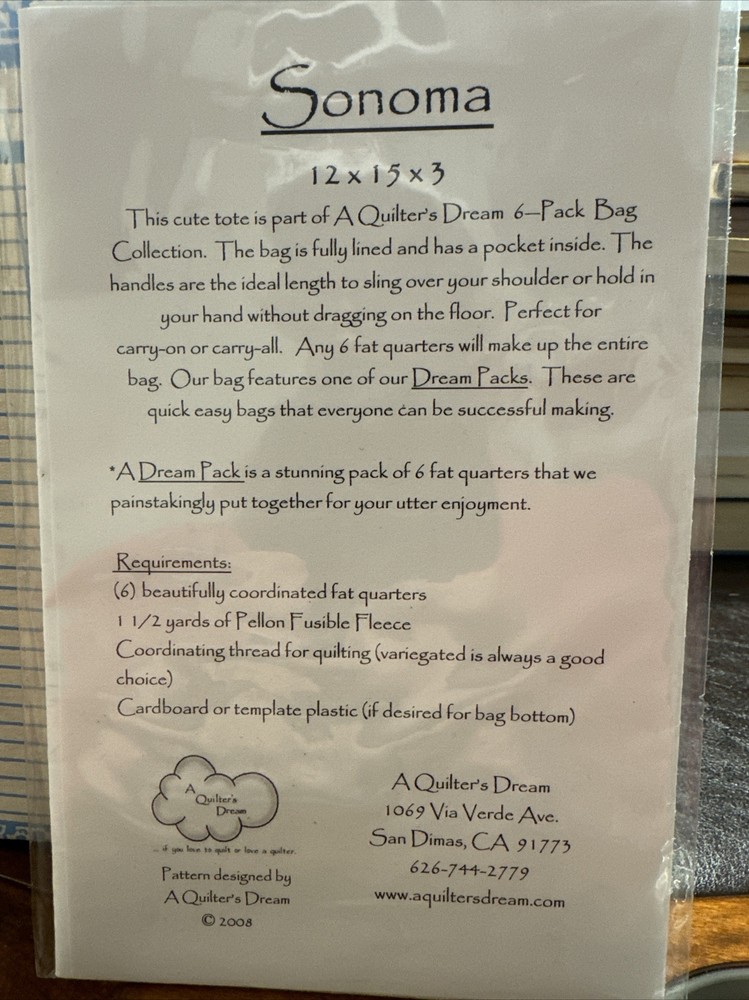 Sonoma
12 x 15 x 3
This cute tote is part of A Quilter's Dream 6–Pack Bag
Collection. The bag is fully lined and has a pocket inside. The
handles are the ideal length to sling over your shoulder or hold in
your hand without dragging on the floor. Perfect for
carry-on or carry-all. Any 6 fat quarters will make up the entire
bag. Our bag features one of our Dream Packs. These are
quick easy bags that everyone can be successful making.
*A Dream Pack is a stunning pack of 6 fat quarters that we
painstakingly put together for your utter enjoyment.
Requirements:
(6) beautifully coordinated fat quarters
1 1/2 yards of Pellon Fusible Fleece
Coordinating thread for quilting (variegated is always a good
choice)
Cardboard or template plastic (if desired for bag bottom)
A
Quilter's
Dream
... if you love to quilt or love a quilter.
Pattern designed by
A Quilter's Dream
© 2008
A Quilter's Dream
1069 Via Verde Ave.
San Dimas, CA 91773
626-744-2779
www.aquiltersdream.com